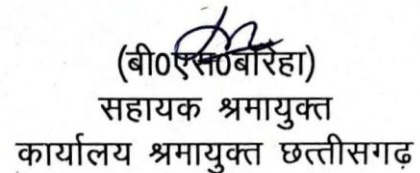 (बी0एस0बरिहा)
सहायक श्रमायुक्त
कार्यालय श्रमायुक्त छत्तीसगढ़